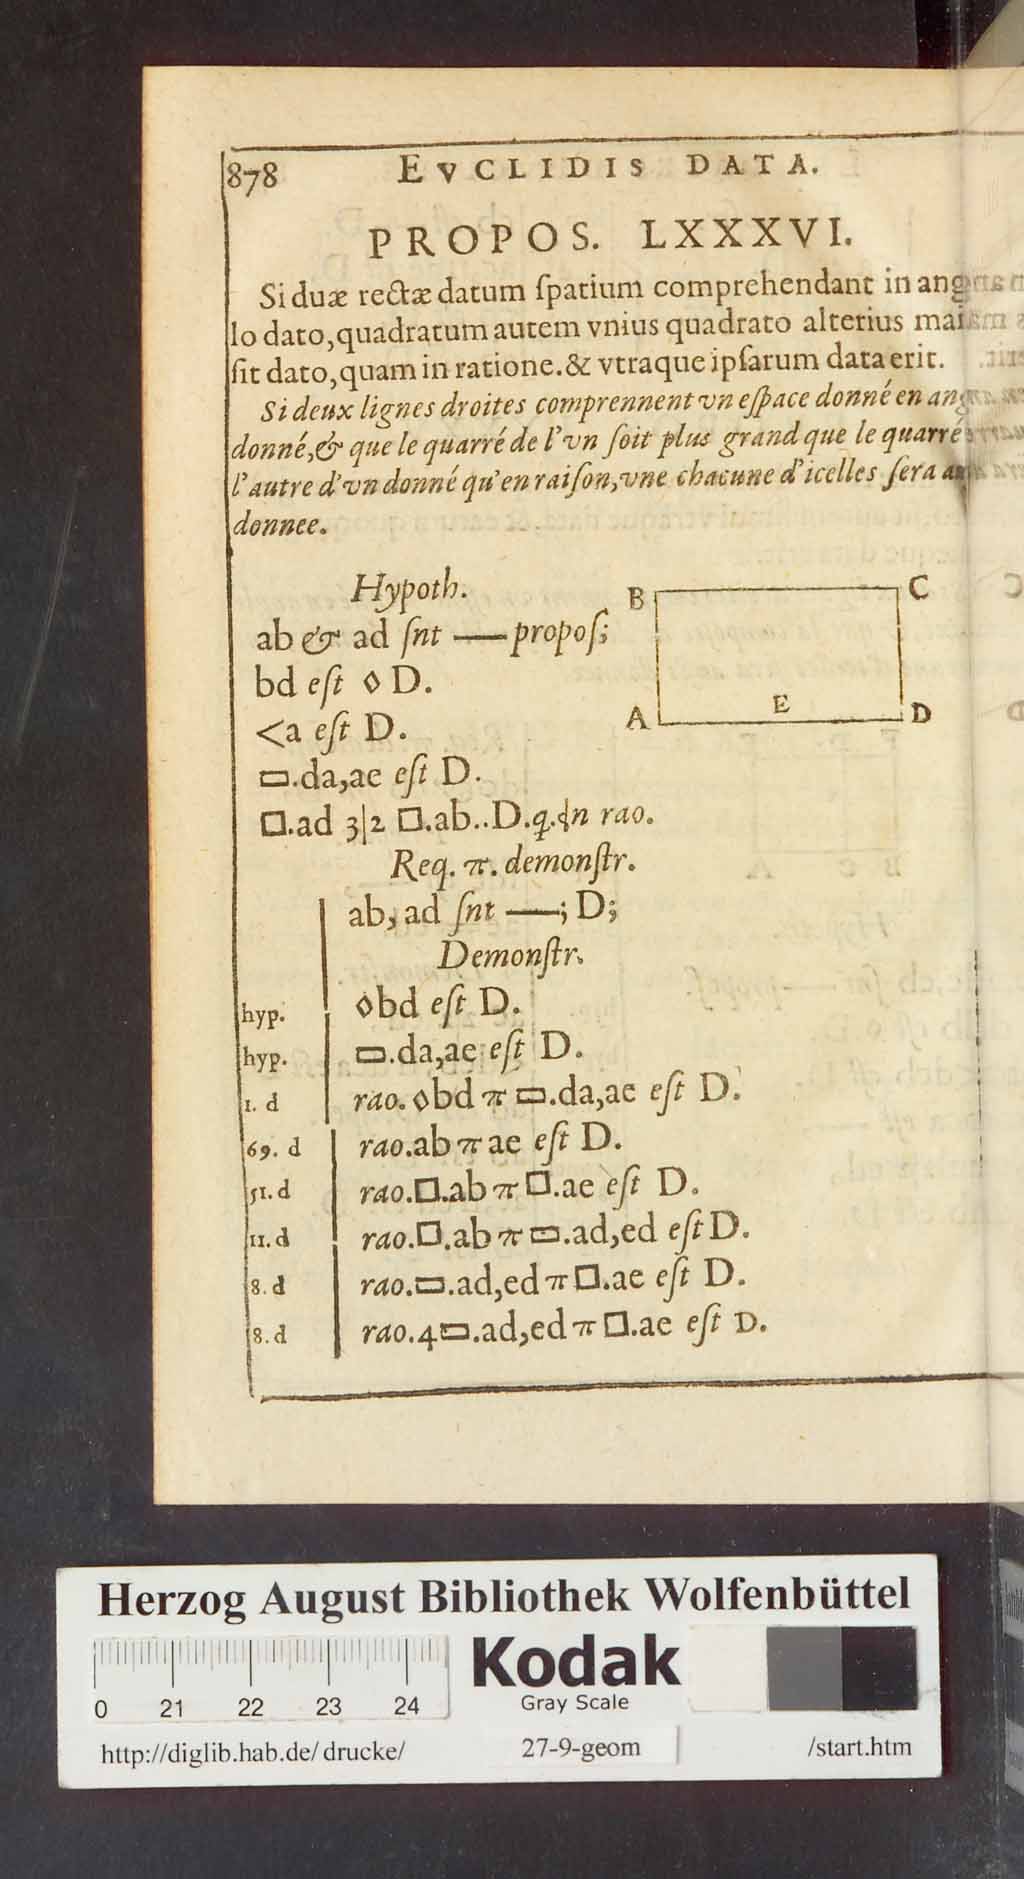 878 EVCLIDIS DATA.
PROPOS. LXXXVI.
Si duæ rectæ datum ſpatium comprehendant in angu
lo dato, quadratum autem vnius quadrato alterius mai
ſit dato, quam in ratione. & vtraque ipſarum data erit.
Si deux lignes droites comprennent vn eſpace donné en
donné, & que le quarré de l'vn ſoit plus grand que le quarré
l'autre d'vn donné qu'en raiſon, vne chacune d'icelles ſera
donnee.
Hypoth.
ab & ad ſnt — propoſ;
bd eſt ◊ D.
<a eſt D.
▭.da,ae eſt D.
□.ad 3|2 □.ab..D.q.in rao.
B C
A E D
Req. π. demonſtr.
ab, ad ſnt —; D;
Demonſtr.
hyp. ◊bd eſt D.
hyp. ▭.da,ae eſt D.
1. d rao. ◊bd π ▭.da,ae eſt D.
69. d rao.ab π ae eſt D.
51. d rao.□.ab π □.ae eſt D.
11. d rao.□.ab π ▭.ad,ed eſt D.
8. d rao.▭.ad,ed π □.ae eſt D.
8. d rao.4▭.ad,ed π □.ae eſt D.
Herzog August Bibliothek Wolfenbüttel
0 21 22 23 24
Kodak
Gray Scale
http://diglib.hab.de/drucke/ 27-9-geom /start.htm